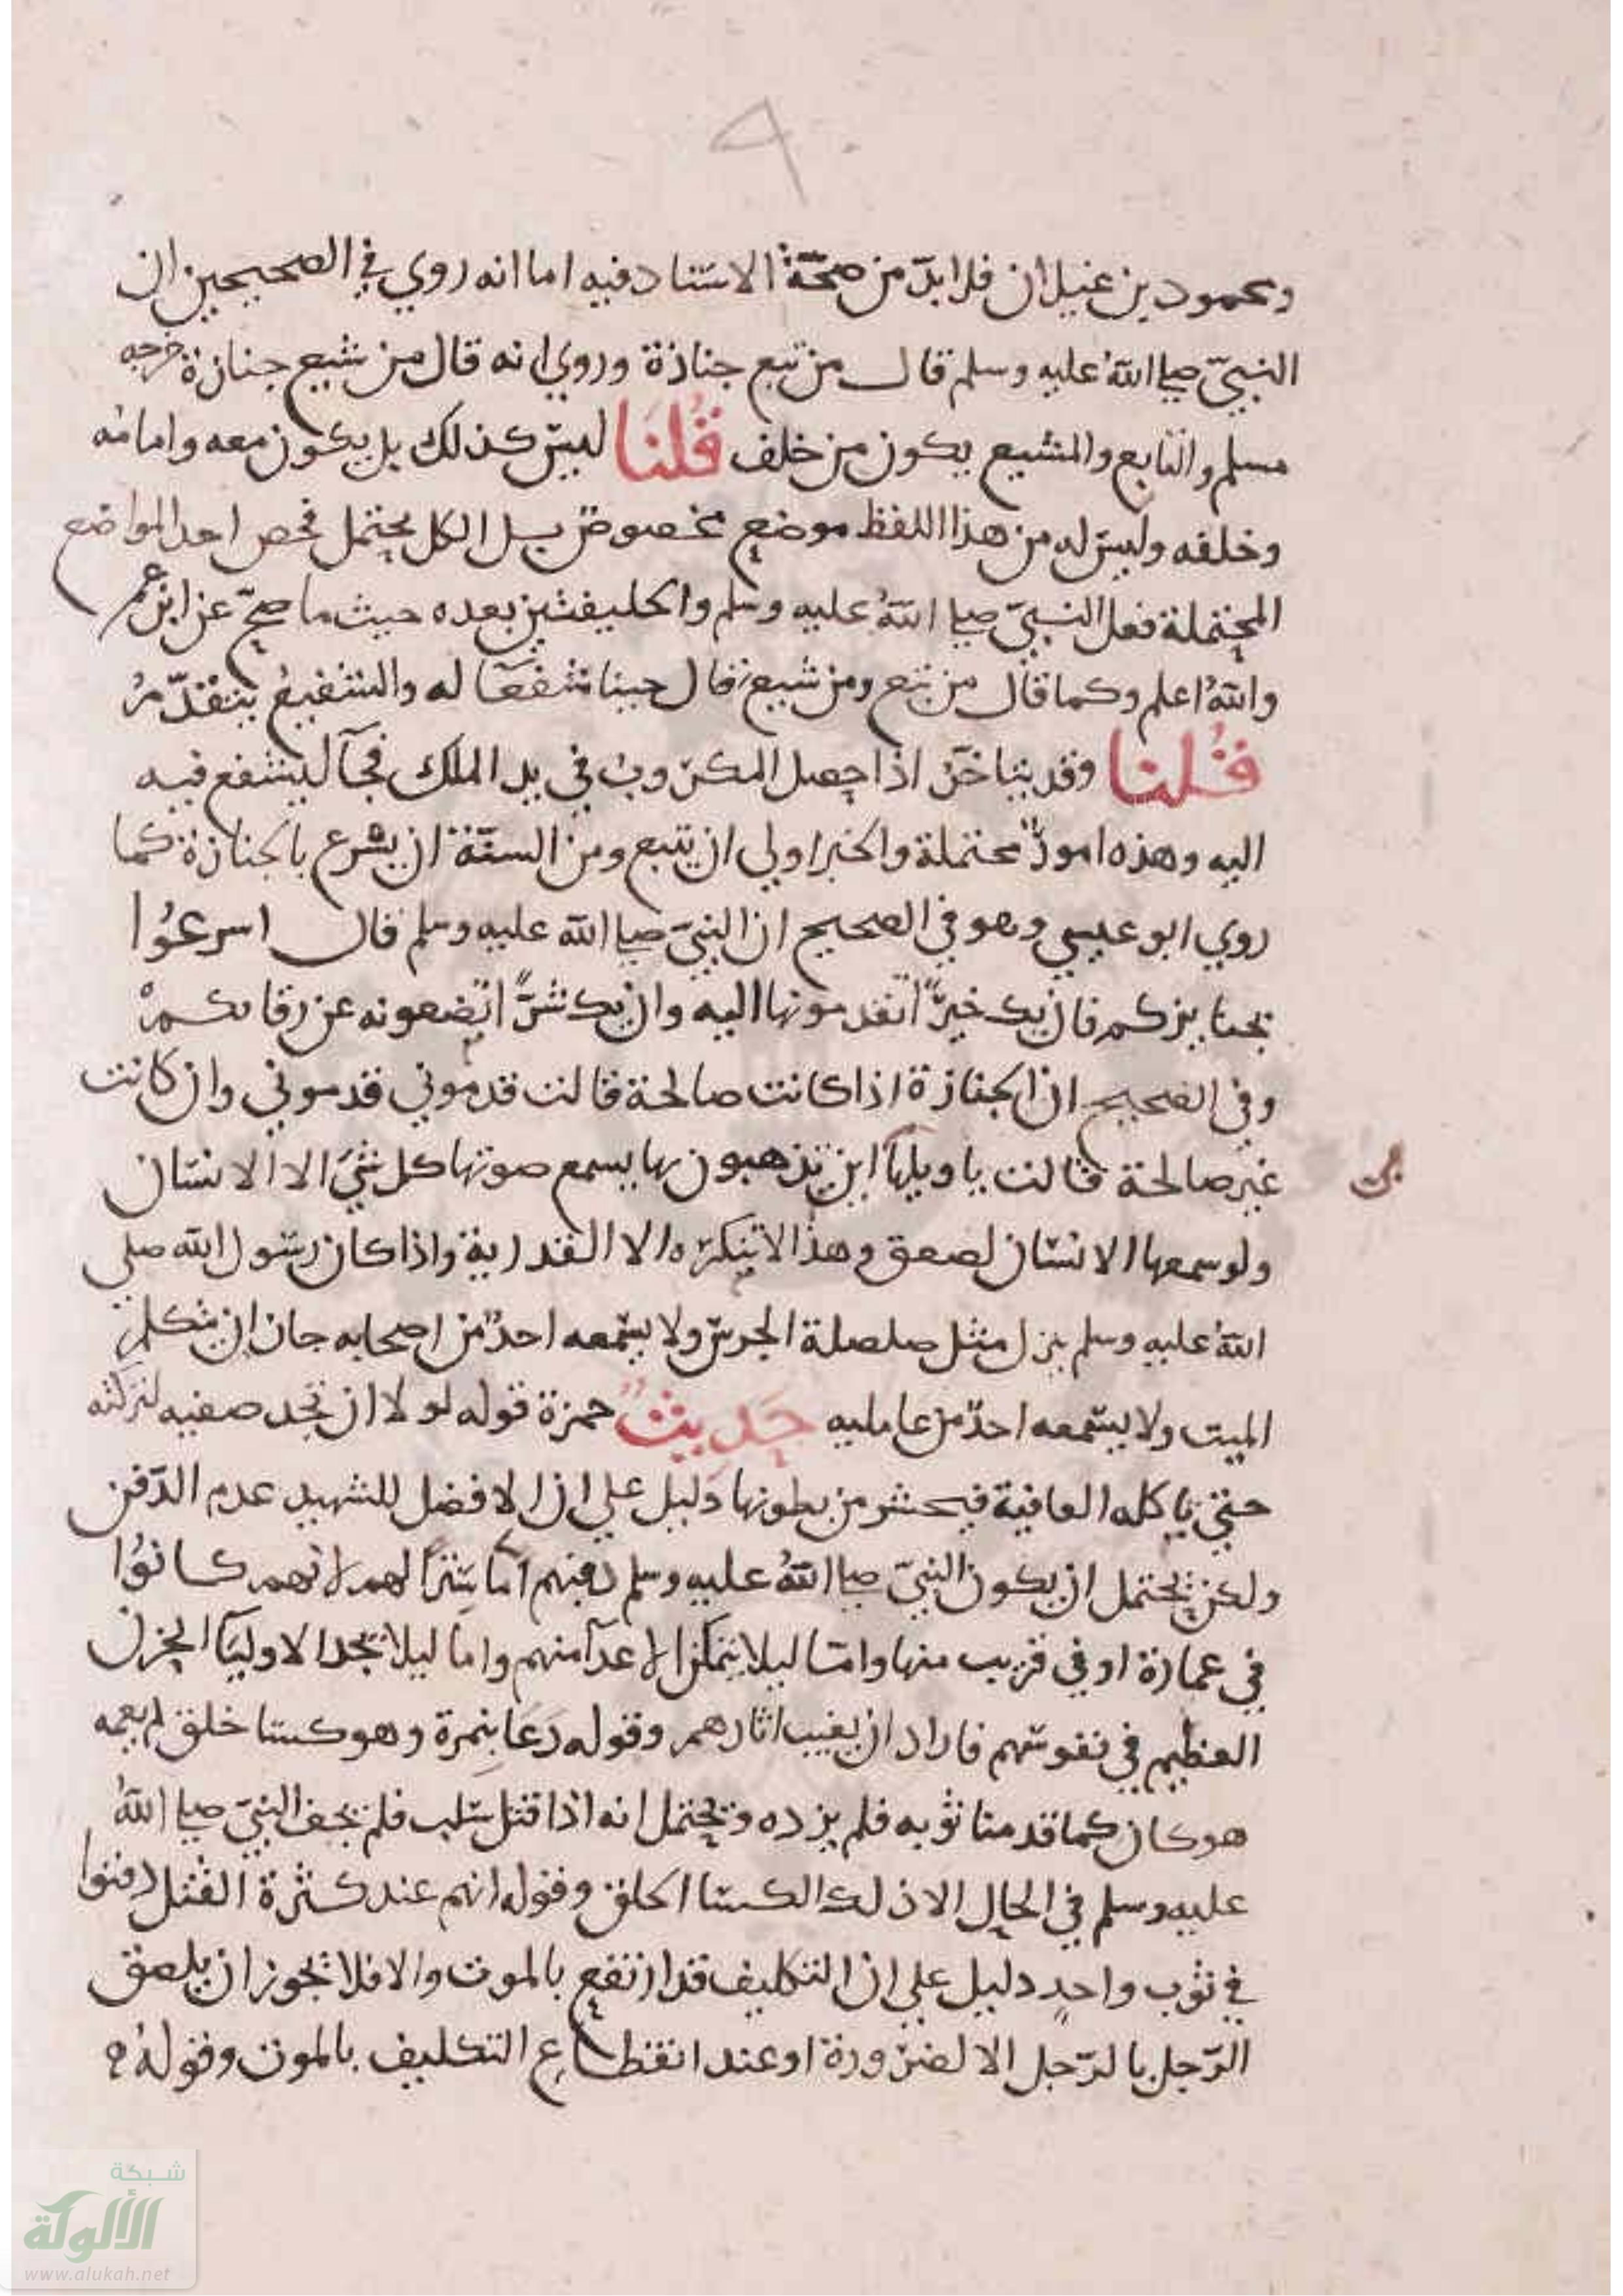 ٩
ومحمود بن غيلان فلا بدّ من صحّة الاسناد فيه اما انه روي في الصحيحين ان
النبيّ صلى اللهُ عليه وسلم قال من تبع جنازة وروي انه قال من شيع جنازة خرجه
مسلم والتابع والمشيع يكون من خلف قُلنَا ليس كذلك بل يكون معه وامامه
وخلفه وليس له من هذا اللفظ موضع مخصوص بل الكل يحتمل فخص احد المواضع
المحتملة فعل النبيّ صلى اللهُ عليه وسلم والخليفتين بعده حيث ما صحّ عن ابن عمر
واللهُ اعلم وكما قال من تبع ومن شيع فقال جينا شفعآ له والشفيع يتقدّمُ
قُلنا وقد بينا خن اذا جعل المكروب في يد الملك فجآ ليشفع فيه
اليه وهذه امورٌ محتملة والخبر اولي ان يتبع ومن السنّة ان يسرع بالجنازة كما
روي ابو عيسي وهو في الصحيح ان النبيّ صلى الله عليه وسلم قال اسرعُوا
بجنايزكم فان يك خيرًا تقدمونها اليه وان يك شرًّا تضعونه عن رقابكمْ
وفي الصحيح ان الجنازة اذا كانت صالحة قالت قدموني قدموني وان كانت
غير صالحة قالت يا ويلهآ اين تذهبون بها يسمع صوتها كل شيَ الا الانسان
ولو سمعها الانسان لصعق وهذا لا ينكره الا القدرية واذا كان رسول الله صلي
اللهُ عليه وسلم ينزل مثل صلصلة الجرس ولا يسمعه احدٌ من اصحابه جاز ان يتكلم
الميت ولا يسمعه احدٌ من حامليه حَدِيثُ حمزة قوله لولا ان تجد صفيه لتركته
حتي ياكله العافية فيحشر من بطونها دَليل علي ان الافضل للشهيد عدم الدّفن
ولكن يحتمل ان يكون النبيّ صلى اللهُ عليه وسلم دفنهم امّا سَترًا لهم لانهم كانوُا
في عمارة او في قريب منها وامّا ليلا يتمكن الاعدآ منهم واما ليلا يجد الاوليآ الحزن
العظيم في نفوسهم فاراد ان يغيب اثارهم وقوله دَعَا بِنمرة وهو كسا خلق لم يعمه
هو كان كما قدمنا ثوبه فلم يزده ويحتمل انه اذا قتل سلب فلم يجف النبيّ صلى اللهُ
عليه وسلم في الحال الا ذلك الكسا الخلق وقوله انهم عند كثرة القتل دفنوا
في ثوب واحدٍ دليل علي ان التكليف قد ارتفع بالموت والا فلا يجوز ان يلصق
الرّجل بالرّجل الا لضرورة او عند انقطاع التكليف بالموت وقولهُ
شبكة
الألوكة
www.alukah.net